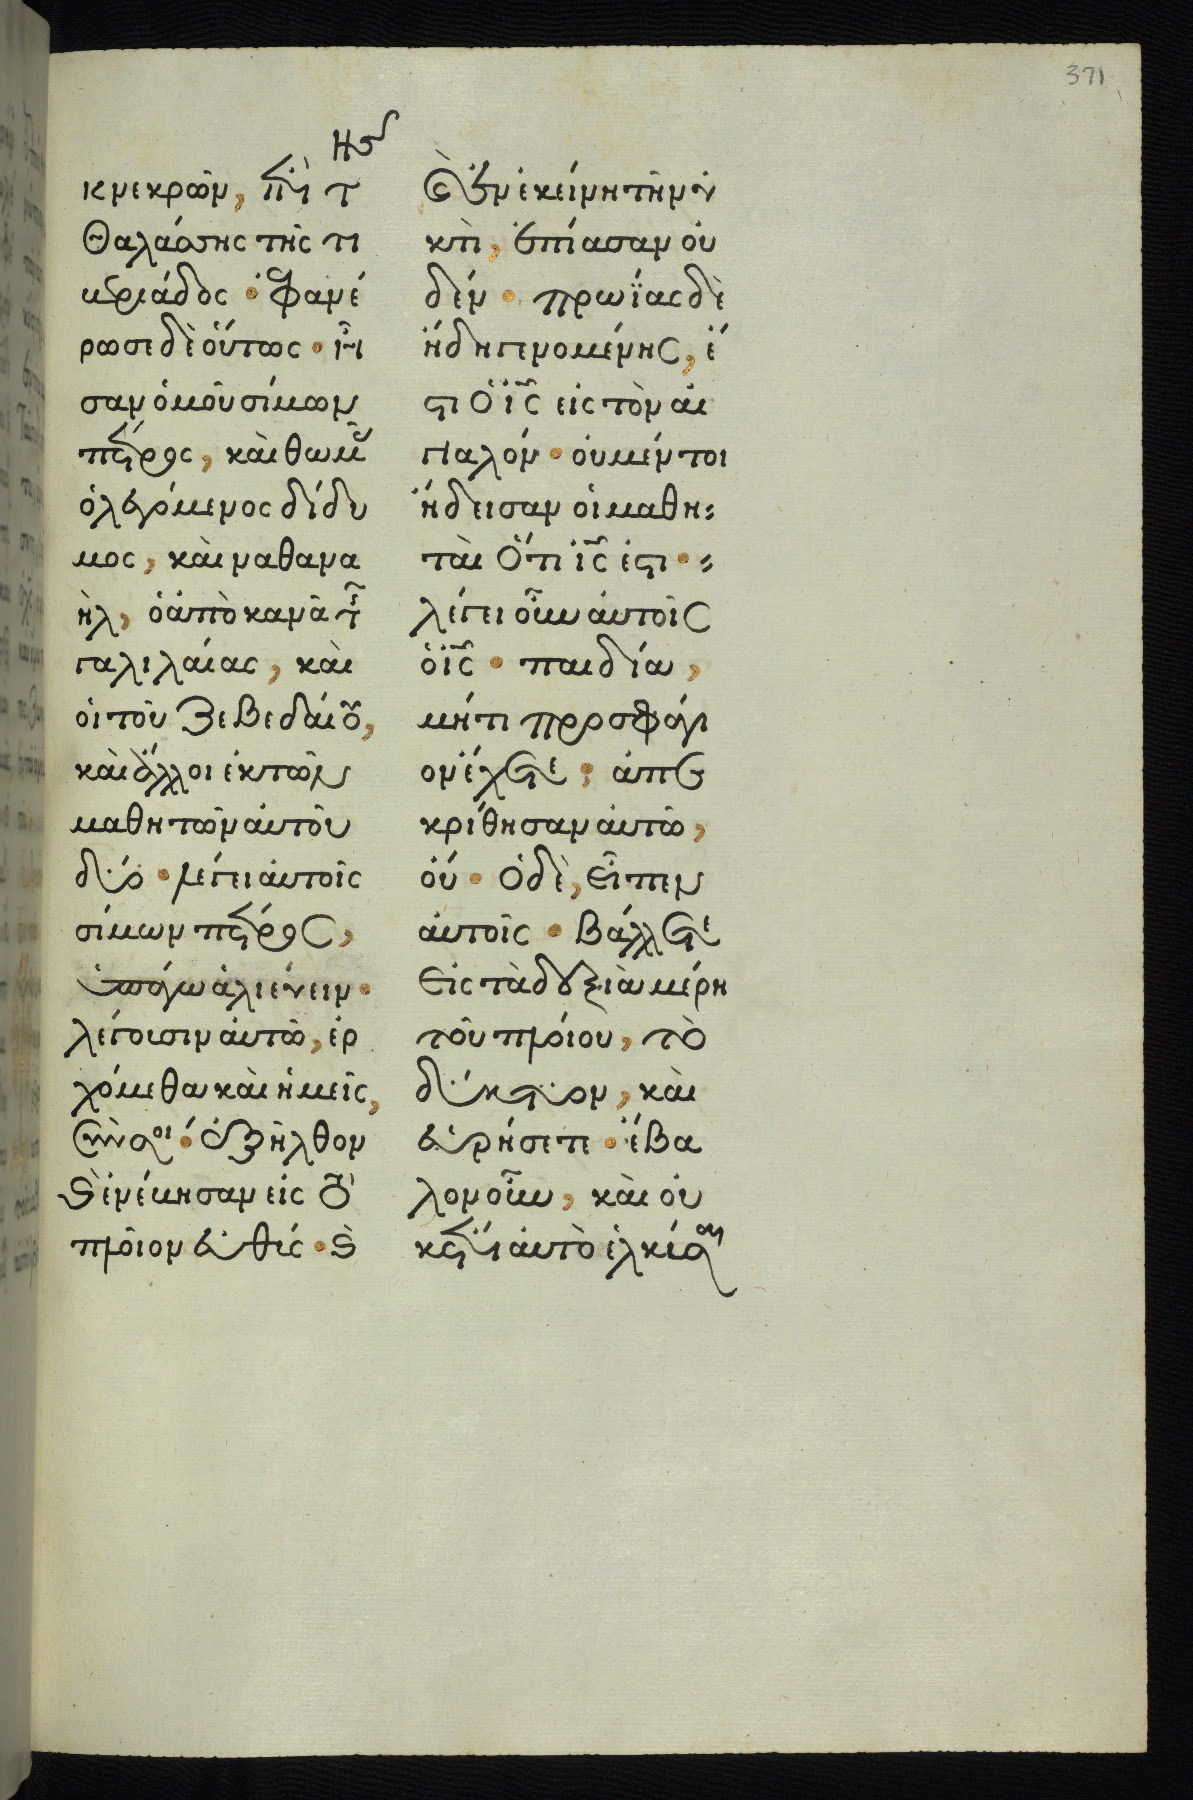 371
ησ
κ νεκρῶν, ἐπὶ τ
θαλάσσης τῆς τι
βεριάδος · ἐφανέ
ρωσε δὲ οὕτως · ἦ
σαν ὁμοῦ σίμων
πέτρος, καὶ θωμᾶς
ὁ λεγόμενος δίδυ
μος, καὶ ναθανα
ὴλ, ὁ ἀπὸ κανᾶ τ
γαλιλαίας, καὶ
οἱ τοῦ ζεβεδαίου,
καὶ ἄλλοι ἐκ τῶν
μαθητῶν αὐτοῦ
δύο · λέγει αὐτοῖς
σίμων πέτρος,
ὑπάγω ἁλιεύειν ·
λέγουσιν αὐτῶ, ἐρ
χόμεθα καὶ ἡμεῖς,
σὺν σοι · ἐξῆλθον
ϗ ἐνέβησαν εἰς τὸ
πλοῖον εὐθύς · ϗ
ἐν ἐκείνη τῆ νυ
κτὶ, ἐπίασαν οὐ
δέν · πρωΐας δὲ
ἤδη γενομένης, ἔ
στη ὁ ἰς εἰς τὸν αἰ
γιαλόν · οὐ μέν τοι
ἤδεισαν οἱ μαθη
ταὶ ὅτι ἰς ἐστι ·
λέγει οὖν αὐτοῖς
ὁ ἰς · παιδία,
μήτι προσφάγι
ον ἔχετε; ἀπε
κρίθησαν αὐτῶ,
οὔ · ὁ δὲ, εἶπεν
αὐτοῖς · βάλλετε
εἰς τὰ δεξιὰ μέρη
τοῦ πλοίου, τὸ
δίκτυον, καὶ
εὑρήσετε · ἔβα
λον οὖν, καὶ οὐ
κέτι αὐτὸ ἑλκύσαι